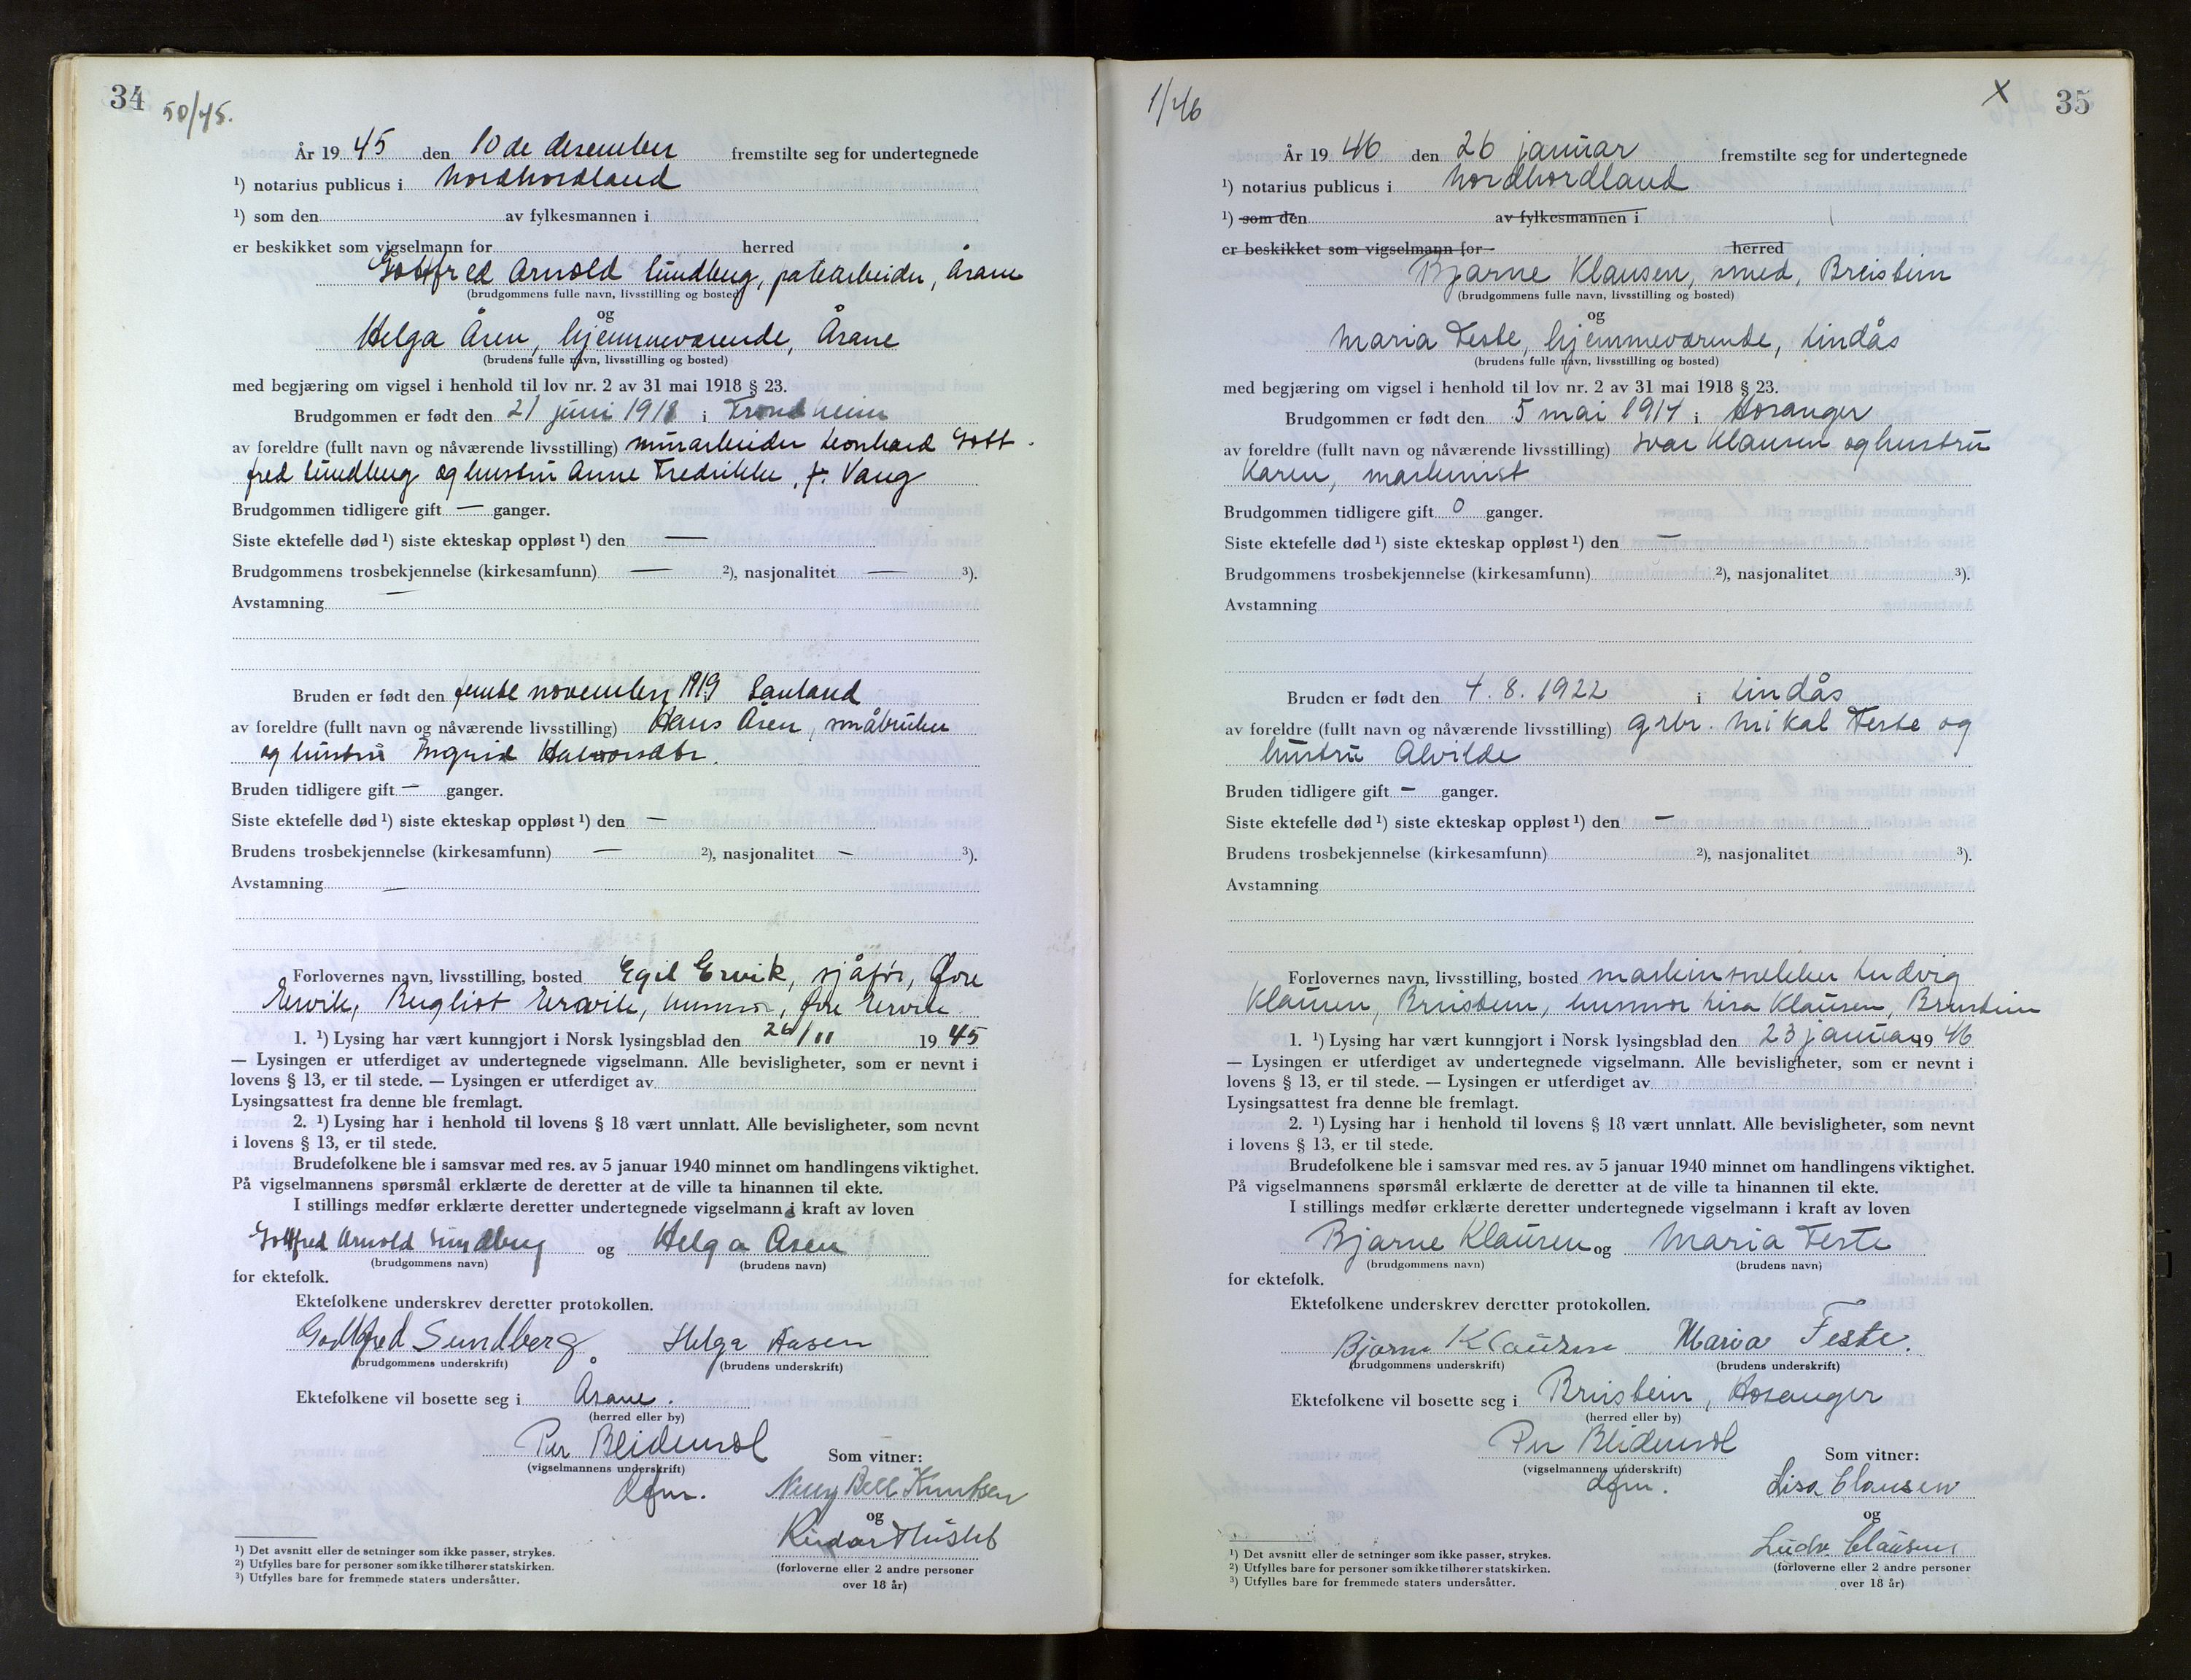 34
50/45.
År 19 45 den 10de desember fremstilte seg for undertegnede
¹) notarius publicus i Nordhordland
¹) som den av fylkesmannen i
er beskikket som vigselmann for herred
Gottfred Arnold Sundberg, Åsane
(brudgommens fulle navn, livsstilling og bosted)
og
Helga Åsen, hjemmeværende, Åsane
(brudens fulle navn, livsstilling og bosted)
med begjæring om vigsel i henhold til lov nr. 2 av 31 mai 1918 § 23.
Brudgommen er født den 21 juni 1918 i Trondheim
av foreldre (fullt navn og nåværende livsstilling) murarbeider Leonhard Gott
fred Sundberg og hustru Anne Fredrikke, f. Vang
Brudgommen tidligere gift — ganger.
Siste ektefelle død ¹) siste ekteskap oppløst ¹) den —
Brudgommens trosbekjennelse (kirkesamfunn) — ²), nasjonalitet — ³).
Avstamning —
Bruden er født den femte november 1919 Sauland
av foreldre (fullt navn og nåværende livsstilling) Hans Åsen, småbruker
og hustru Ingrid Halvorsdtr.
Bruden tidligere gift — ganger.
Siste ektefelle død ¹) siste ekteskap oppløst ¹) den —
Brudens trosbekjennelse (kirkesamfunn) — ²), nasjonalitet — ³).
Avstamning —
Forlovernes navn, livsstilling, bosted Egil Ervik, sjåfør, Øvre
Ervik, Ervik, husmor, Øvre Ervik
1. ¹) Lysing har vært kunngjort i Norsk lysingsblad den 26/11 19 45
— Lysingen er utferdiget av undertegnede vigselmann. Alle bevisligheter, som er nevnt i
lovens § 13, er til stede. — Lysingen er utferdiget av
Lysingsattest fra denne ble fremlagt.
2. ¹) Lysing har i henhold til lovens § 18 vært unnlatt. Alle bevisligheter, som nevnt
i lovens § 13, er til stede.
Brudefolkene ble i samsvar med res. av 5 januar 1940 minnet om handlingens viktighet.
På vigselmannens spørsmål erklærte de deretter at de ville ta hinannen til ekte.
I stillings medfør erklærte deretter undertegnede vigselmann i kraft av loven
Gottfred Arnold Sundberg og Helga Åsen
(brudgommens navn) (brudens navn)
for ektefolk.
Ektefolkene underskrev deretter protokollen.
Gottfred Sundberg Helga Aasen
(brudgommens underskrift) (brudens underskrift)
Ektefolkene vil bosette seg i Åsane.
(herred eller by)
Per Bleidensol Som vitner:
(vigselmannens underskrift)
dfm. Bell Knutsen
og
Reidar
(forloverne eller 2 andre personer
over 18 år)
¹) Det avsnitt eller de setninger som ikke passer, strykes.
²) Utfylles bare for personer som ikke tilhører statskirken.
³) Utfylles bare for fremmede staters undersåtter.
1/46
X
35
År 19 46 den 26 januar fremstilte seg for undertegnede
¹) notarius publicus i Nordhordland
¹) som den av fylkesmannen i
er beskikket som vigselmann for herred
Bjarne Klausen, smed, Breistein
(brudgommens fulle navn, livsstilling og bosted)
og
Maria Feste, hjemmeværende, Lindås
(brudens fulle navn, livsstilling og bosted)
med begjæring om vigsel i henhold til lov nr. 2 av 31 mai 1918 § 23.
Brudgommen er født den 5 mai 1914 i Hosanger
av foreldre (fullt navn og nåværende livsstilling) Ivar Klausen og hustru
Karen, maskinist
Brudgommen tidligere gift 0 ganger.
Siste ektefelle død ¹) siste ekteskap oppløst ¹) den —
Brudgommens trosbekjennelse (kirkesamfunn) ²), nasjonalitet ³).
Avstamning
Bruden er født den 4.8.1922 i Lindås
av foreldre (fullt navn og nåværende livsstilling) grbr. Mikal Feste og
hustru Alvilde
Bruden tidligere gift — ganger.
Siste ektefelle død ¹) siste ekteskap oppløst ¹) den —
Brudens trosbekjennelse (kirkesamfunn) ²), nasjonalitet ³).
Avstamning
Forlovernes navn, livsstilling, bosted maskinsnekker Ludvig
Klausen, Breistein, husmor Lisa Klausen, Breistein
1. ¹) Lysing har vært kunngjort i Norsk lysingsblad den 23 januar 19 46
— Lysingen er utferdiget av undertegnede vigselmann. Alle bevisligheter, som er nevnt i
lovens § 13, er til stede. — Lysingen er utferdiget av
Lysingsattest fra denne ble fremlagt.
2. ¹) Lysing har i henhold til lovens § 18 vært unnlatt. Alle bevisligheter, som nevnt
i lovens § 13, er til stede.
Brudefolkene ble i samsvar med res. av 5 januar 1940 minnet om handlingens viktighet.
På vigselmannens spørsmål erklærte de deretter at de ville ta hinannen til ekte.
I stillings medfør erklærte deretter undertegnede vigselmann i kraft av loven
Bjarne Klausen og Maria Feste
(brudgommens navn) (brudens navn)
for ektefolk.
Ektefolkene underskrev deretter protokollen.
Bjarne Klausen Maria Feste.
(brudgommens underskrift) (brudens underskrift)
Ektefolkene vil bosette seg i Breistein, Hosanger
(herred eller by)
Per Bleidensol Som vitner:
(vigselmannens underskrift)
dfm. Lisa Clausen
og
Ludv. Clausen
(forloverne eller 2 andre personer
over 18 år)
¹) Det avsnitt eller de setninger som ikke passer, strykes.
²) Utfylles bare for personer som ikke tilhører statskirken.
³) Utfylles bare for fremmede staters undersåtter.